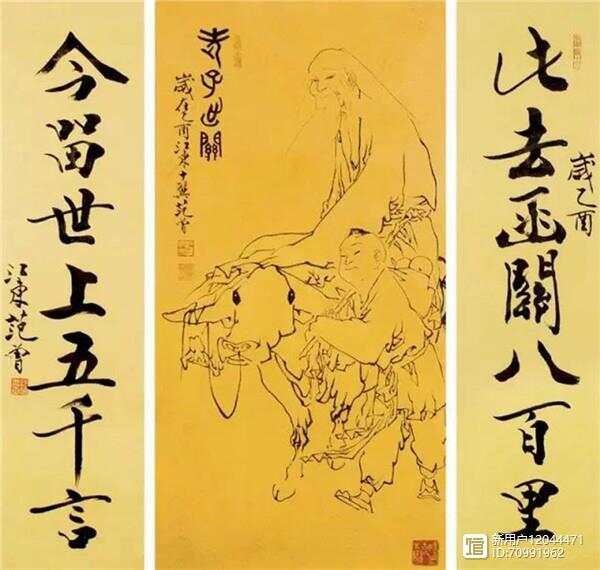 此去函關八百里
歲乙酉
老子出關
歲在乙酉江東十翼范曾
今留世上五千言
江東范曾
新用户12044471
ID:70991962